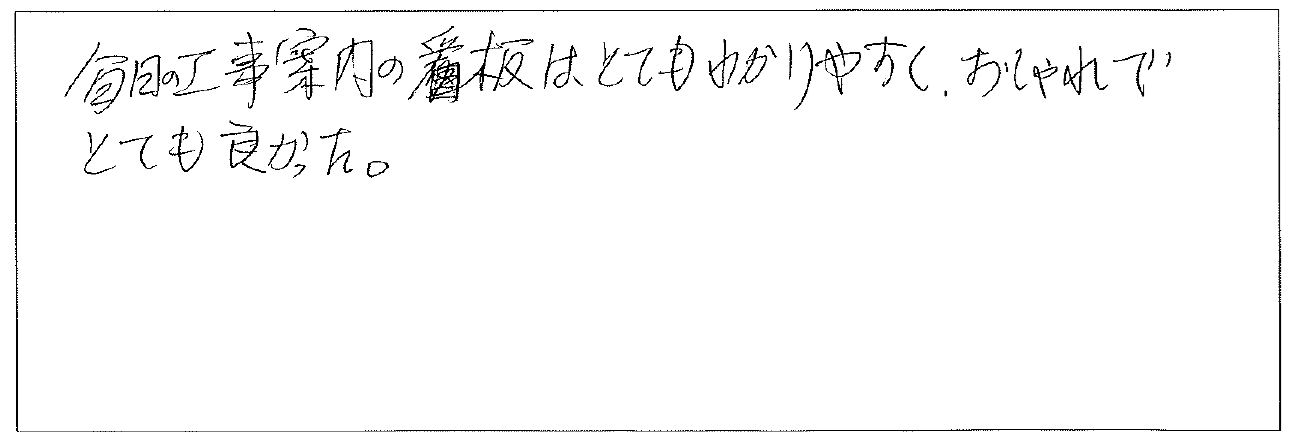 毎日の工事案内の看板はとてもわかりやすく、おしゃれで
とても良かった。